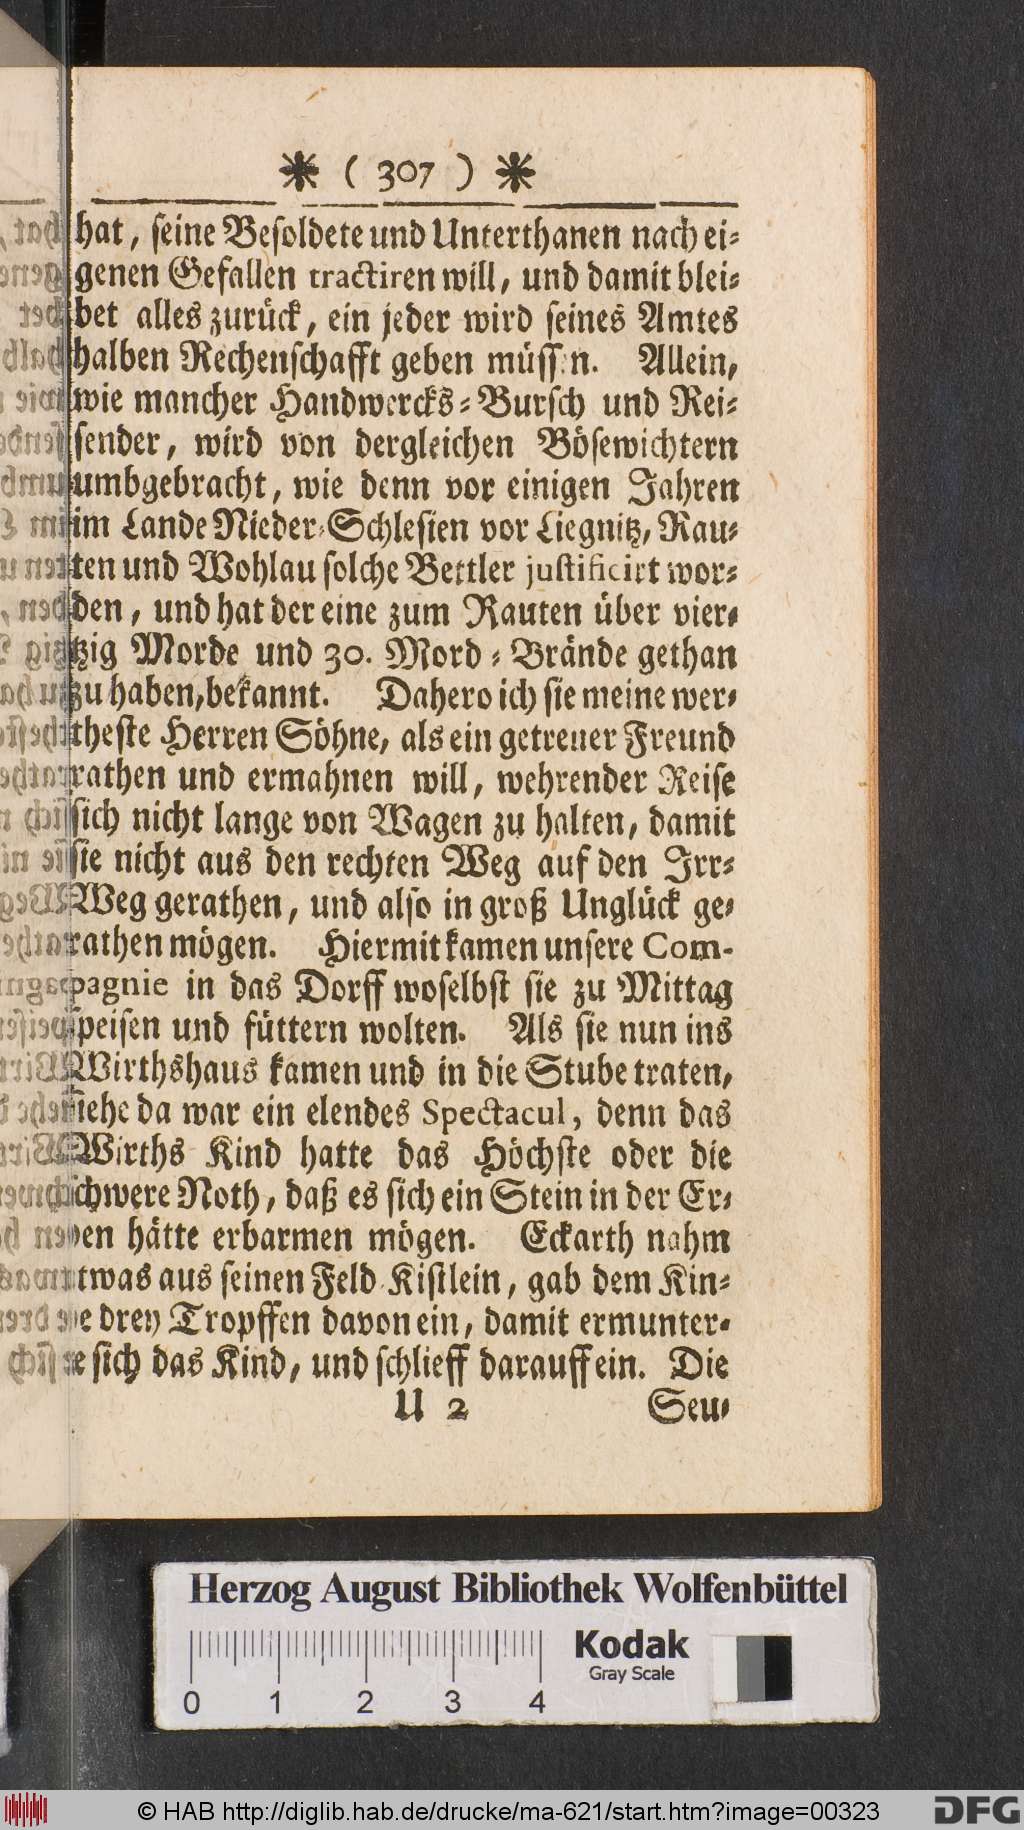 * ( 307 ) *
hat, seine Besoldete und Unterthanen nach ei-
genen Gefallen tractiren will, und damit blei-
bet alles zurück, ein jeder wird seines Amtes
halben Rechenschafft geben müssen. Allein,
wie mancher Handwercks-Bursch und Rei-
sender, wird von dergleichen Bösewichtern
umbgebracht, wie denn vor einigen Jahren
im Lande Nieder-Schlesien vor Liegnitz, Rau-
ten und Wohlau solche Bettler justificirt wor-
den, und hat der eine zum Rauten über vier-
tzig Morde und 30. Mord-Brände gethan
zu haben, bekannt. Dahero ich sie meine wer-
theste Herren Söhne, als ein getreuer Freund
rathen und ermahnen will, wehrender Reise
sich nicht lange von Wagen zu halten, damit
sie nicht aus den rechten Weg auf den Irr-
Weg gerathen, und also in groß Unglück ge-
rathen mögen. Hiermit kamen unsere Com-
pagnie in das Dorff woselbst sie zu Mittag
speisen und füttern wolten. Als sie nun ins
Wirthshaus kamen und in die Stube traten,
siehe da war ein elendes Spectacul, denn das
Wirths Kind hatte das Höchste oder die
schwere Noth, daß es sich ein Stein in der Er-
den hätte erbarmen mögen. Eckarth nahm
etwas aus seinen Feld-Kistlein, gab dem Kin-
de drey Tropffen davon ein, damit ermunter-
te sich das Kind, und schlieff darauff ein. Die
U 2 Seu-
Herzog August Bibliothek Wolfenbüttel
Kodak
Gray Scale
0 1 2 3 4
© HAB http://diglib.hab.de/drucke/ma-621/start.htm?image=00323
DFG